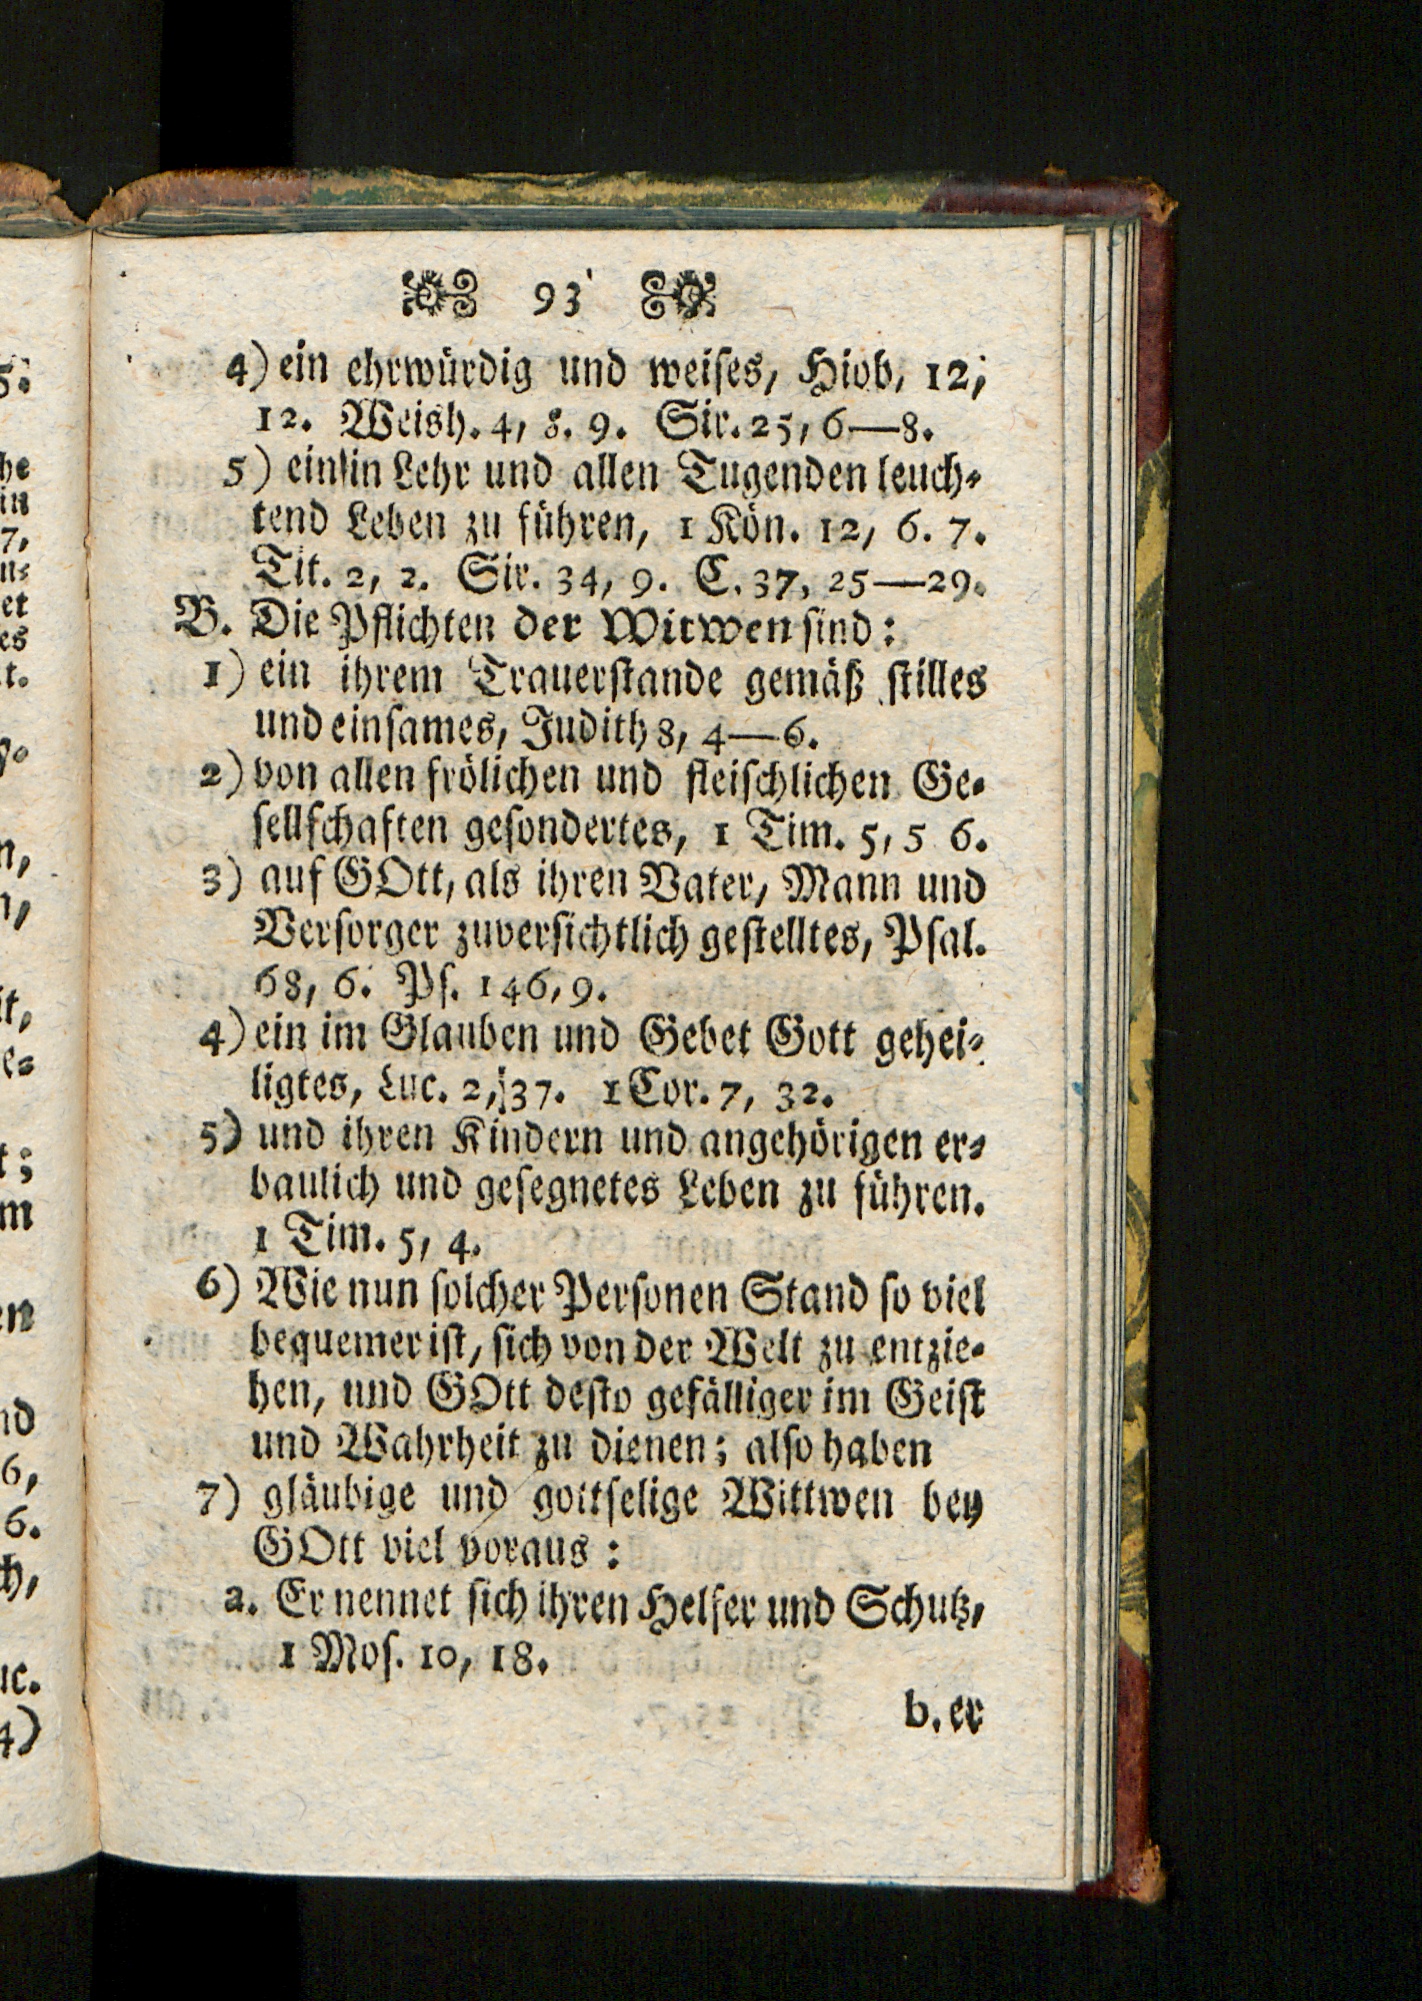 93
4) ein ehrwürdig und weises, Hiob, 12,
12. Weish. 4, 8. 9. Sir. 25, 6—8.
5) ein in Lehr und allen Tugenden leuch-
tend Leben zu führen, 1 Kön. 12, 6. 7.
Tit. 2, 2. Sir. 34, 9. C. 37, 25—29.
B. Die Pflichten der Witwen sind:
1) ein ihrem Trauerstande gemäß stilles
und einsames, Judith 8, 4—6.
2) von allen frölichen und fleischlichen Ge-
sellschaften gesondertes, 1 Tim. 5, 5 6.
3) auf GOtt, als ihren Vater, Mann und
Versorger zuversichtlich gestelltes, Psal.
68, 6. Ps. 146, 9.
4) ein im Glauben und Gebet Gott gehei-
ligtes, Luc. 2, 37. 1 Cor. 7, 32.
5) und ihren Kindern und angehörigen er-
baulich und gesegnetes Leben zu führen.
1 Tim. 5, 4.
6) Wie nun solcher Personen Stand so viel
bequemer ist, sich von der Welt zu entzie-
hen, und GOtt desto gefälliger im Geist
und Wahrheit zu dienen; also haben
7) gläubige und gottselige Wittwen bey
GOtt viel voraus:
a. Er nennet sich ihren Helfer und Schutz,
1 Mos. 10, 18.
b. er